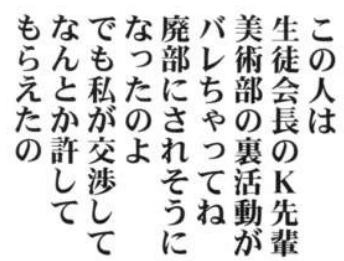 この人は
生徒会長のK先輩
美術部の裏活動が
バレちゃってね
廃部にされそうに
なったのよ
でも私が交渉して
なんとか許して
もらえたの